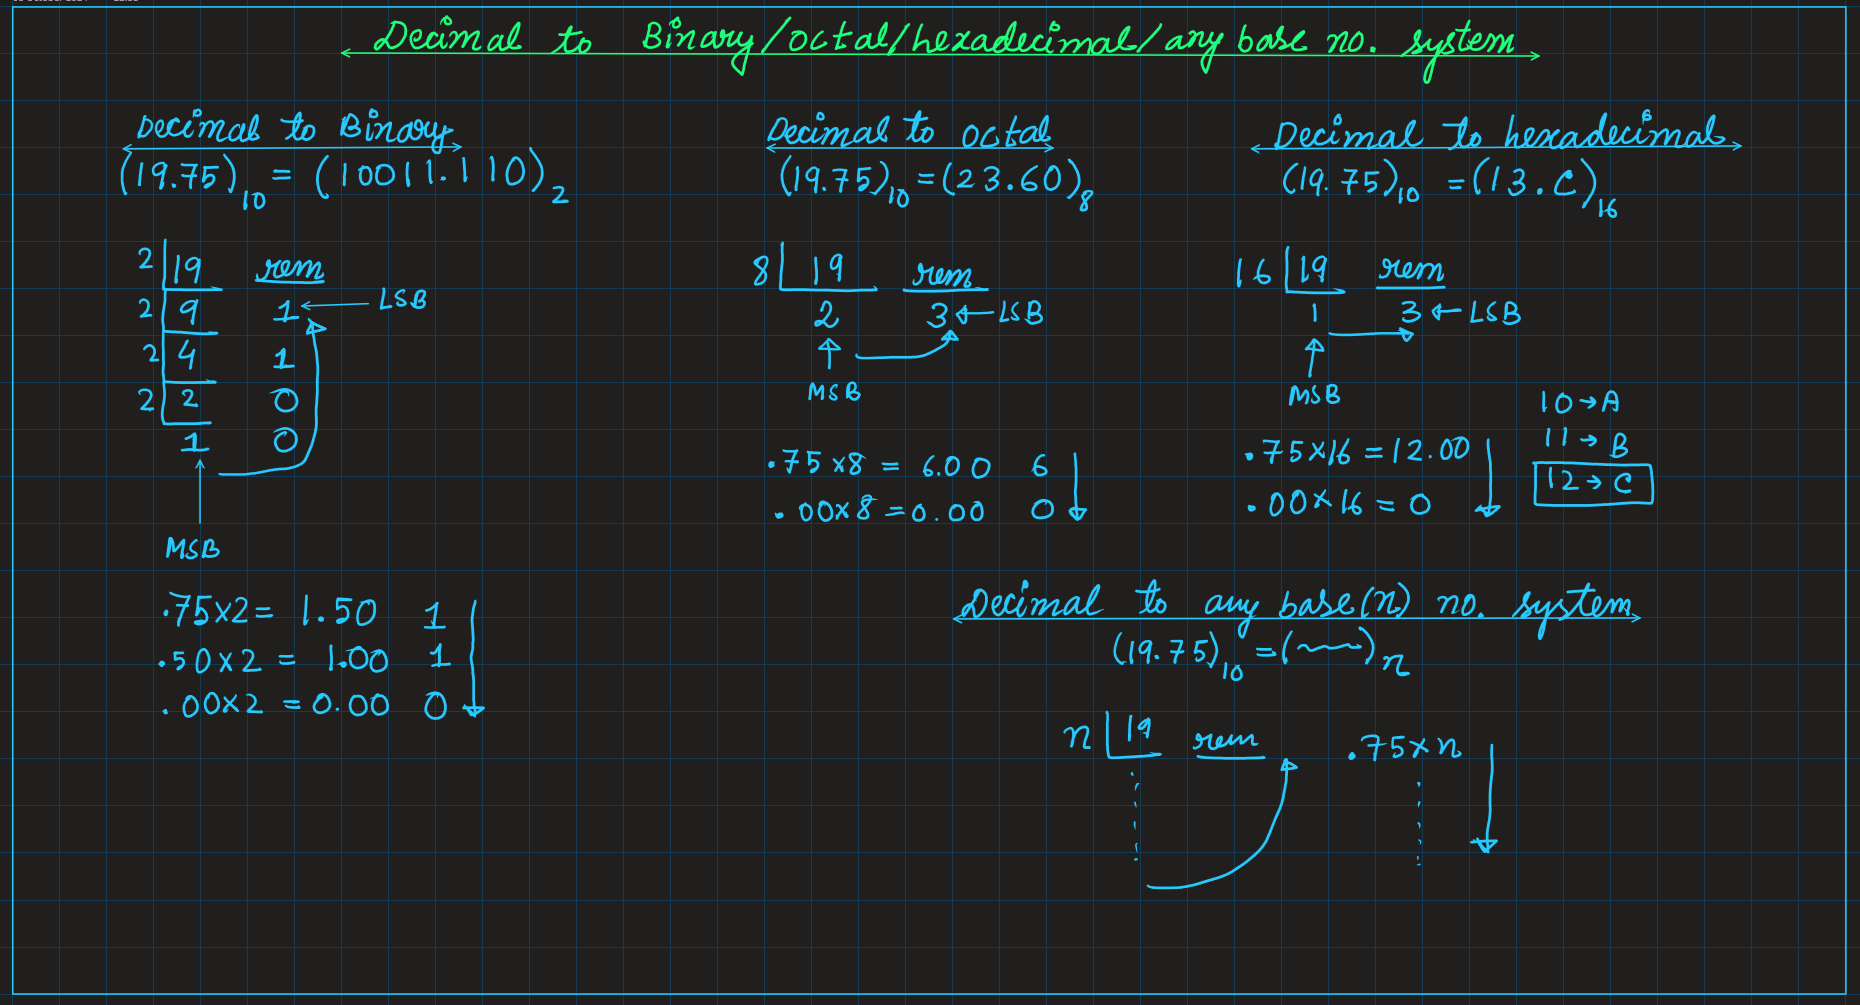 Decimal to Binary/octal/hexadecimal/any base no. system
Decimal to Binary
(19.75)10 = (10011.110)2
2 | 19 rem
2 | 9 1 ← LSB
2 | 4 1
2 | 2 0
1 0
MSB
.75×2 = 1.50 1
.50×2 = 1.00 1
.00×2 = 0.00 0
Decimal to octal
(19.75)10 = (23.60)8
8 | 19 rem
2 3 ← LSB
MSB
.75×8 = 6.00 6
.00×8 = 0.00 0
Decimal to hexadecimal
(19.75)10 = (13.C)16
16 | 19 rem
1 3 ← LSB
MSB
.75×16 = 12.00
.00×16 = 0
10 → A
11 → B
12 → C
Decimal to any base(n) no. system
(19.75)10 = ( )n
n | 19 rem .75×n